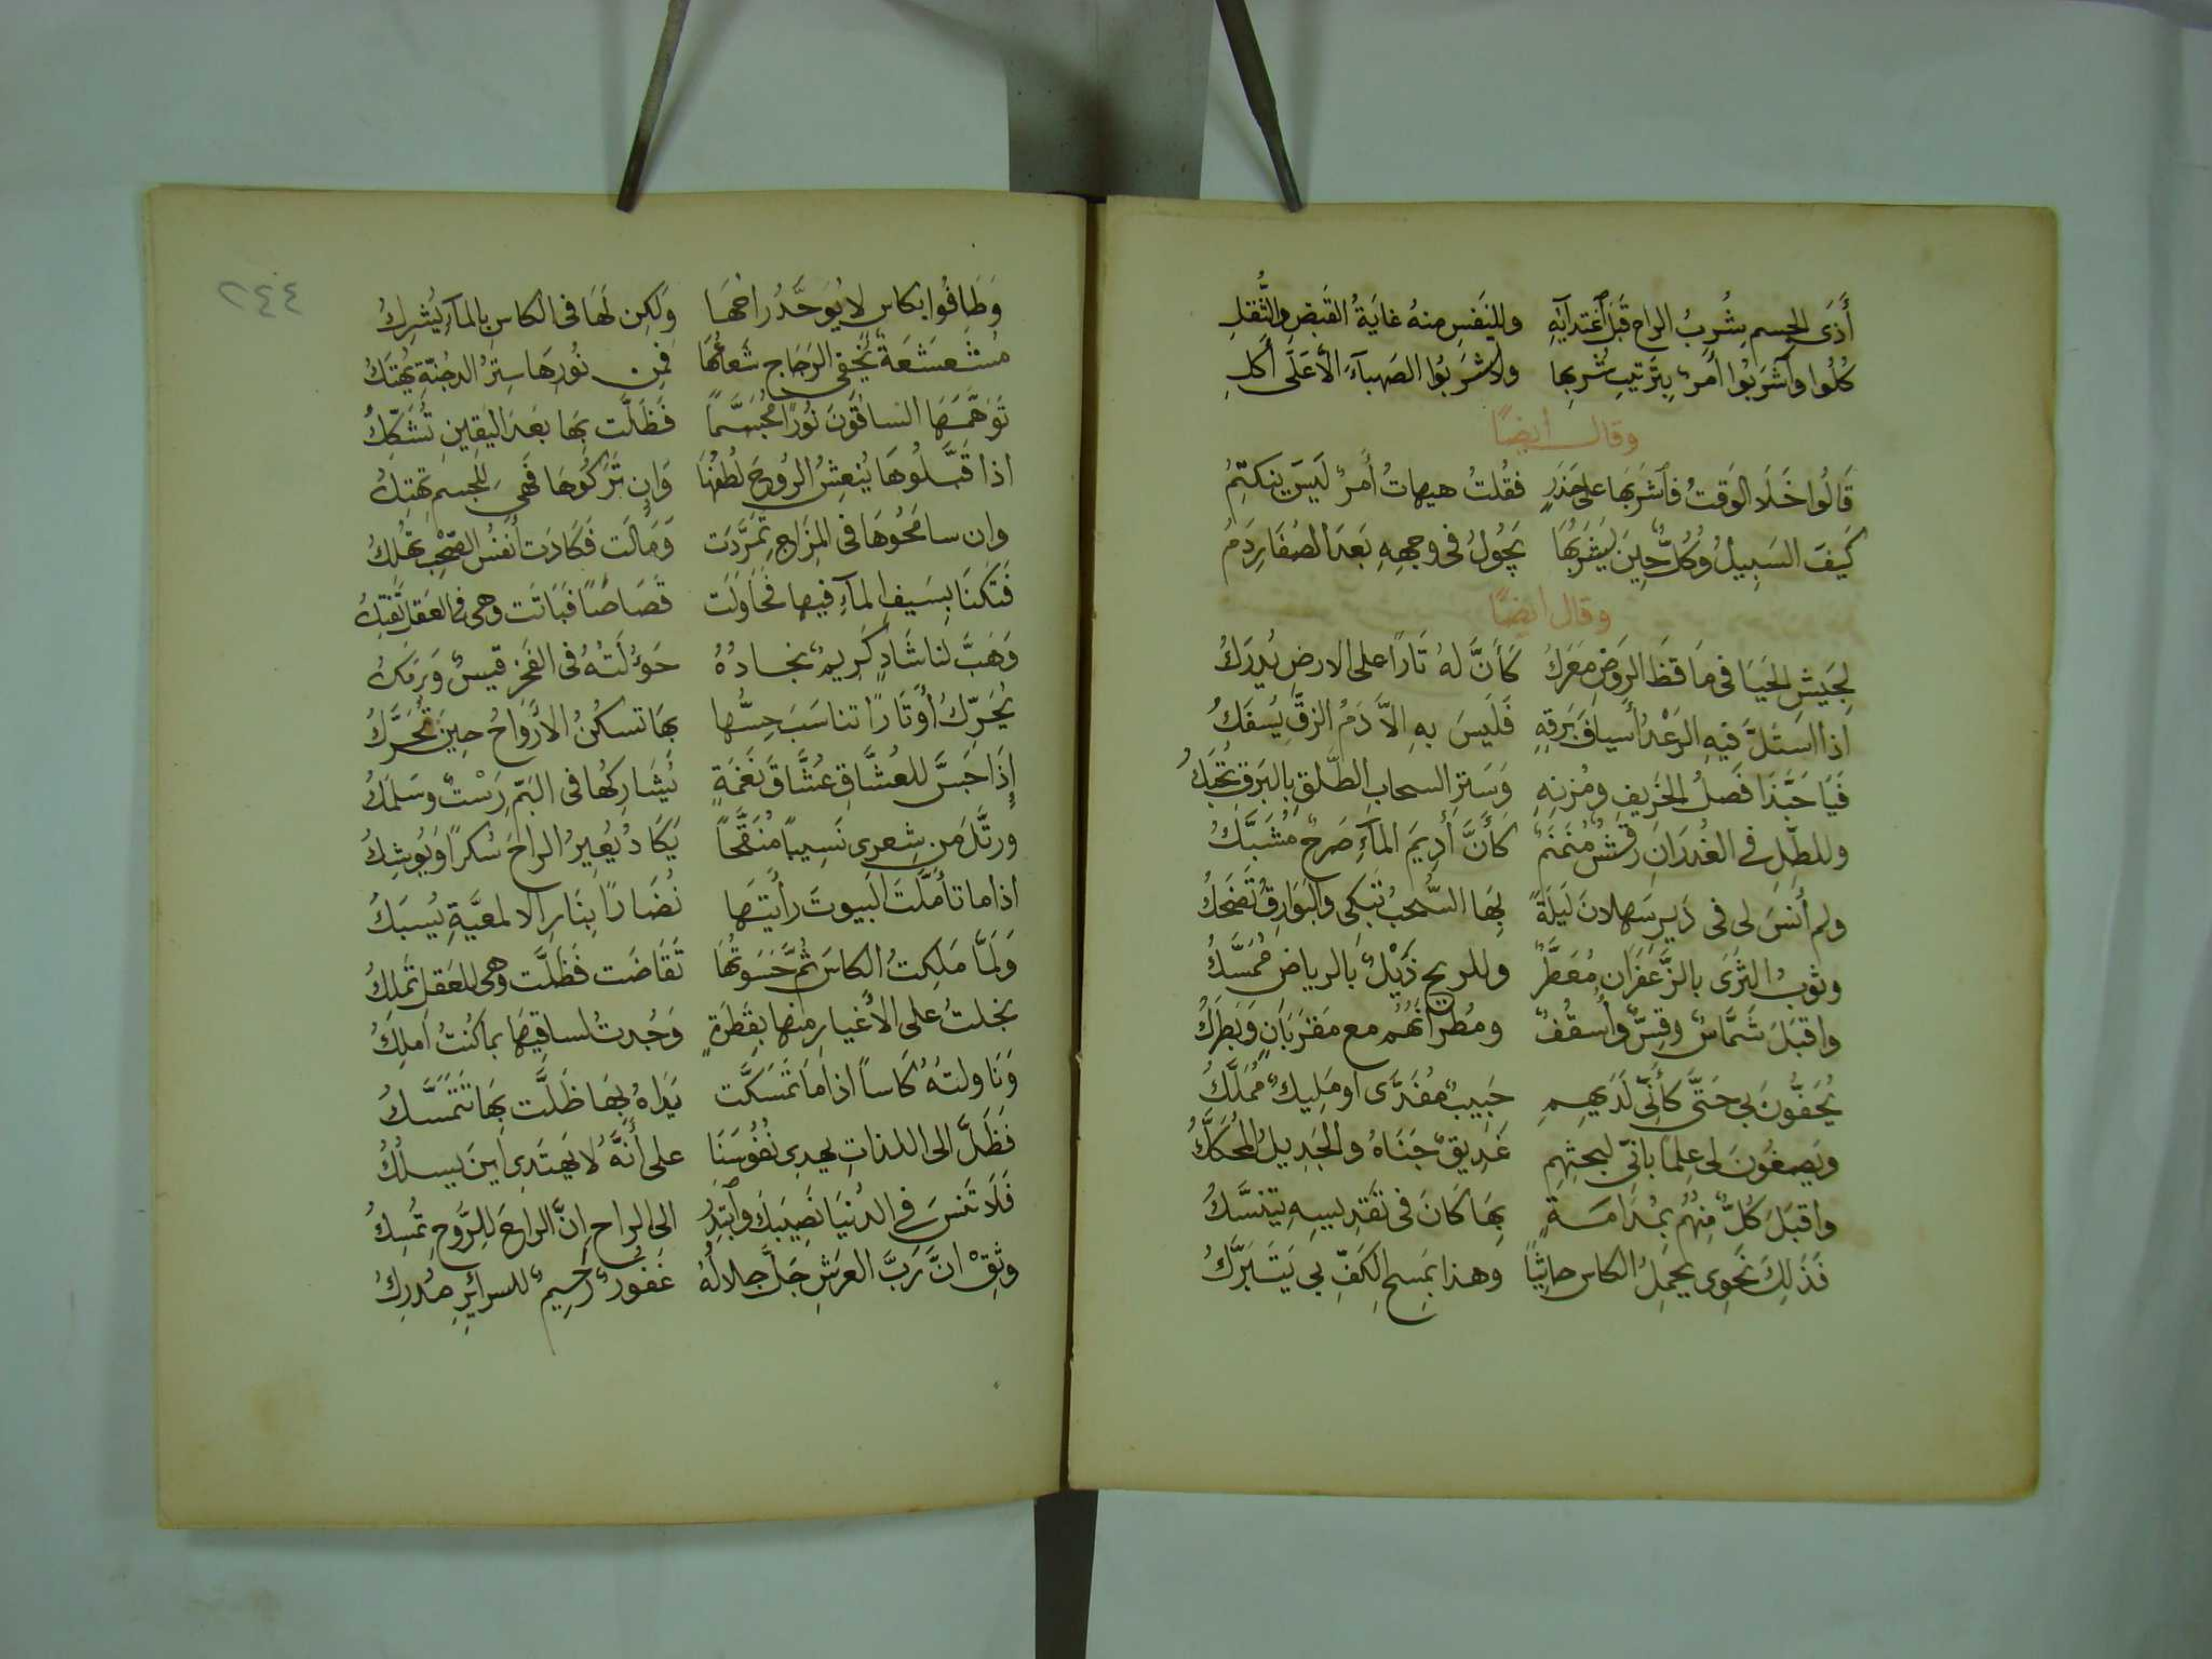 أَذَى الجسم بِشُربِ الراح قَبلَ أغتدآئِهِ وللنَفسِ منهُ غايَةُ القَبضِ والثُّقلِ
كُلُوا وآشرَبُوا أَمرٌ بِتَرتيبِ شُربِها ولا شرَبُوا الصَهبآءَ الاَّ عَلَى أَكلِ
وقال أيضًا
قَالُوا خَلَا الوَقتُ فآشرَبهَا على حَذَرٍ فقُلتُ هيهاتُ أَمرٌ لَيسَ ينكتِمُ
كَيفَ السَبِيلُ وكُلٌّ حِينَ يَشرَبُهَا يَجُولُ فى وجههِ بَعدَ الصُفَارِ دَمُ
وقال ايضًا
لِجَيشِ الحَيَا فى مَاقطَ الرَوضِ مَعرَكُ كَأَنَّ لهُ ثَارًا على الارضِ يُدرَكُ
اذا استَلَّ فيهِ الرَعْدُ أسيافَ بَرقِهِ فَلَيسَ بهِ الاَّ دَمُ الزقِّ يُسفَكُ
فَيَا حَبَّذَا فَصلُ الخَريفِ ومُزنِهِ وَسَترِ السحابِ الطَّلق بالبَرقِ تُحبَكُ
وللطَلِّ فى الغُدرَانِ رَقشٌ مُنَمنَمٌ كَأَنَّ أَدِيمَ المآءِ صَرحٌ مُشَبَّكُ
ولم أنسَ لى فى دَيرِ سَهلانَ لَيلَةً بِهَا السُّحبُ تَبكِى والبَوَارِقُ تَضحَكُ
وثوبُ الثَرَى بالزَّعفَرَانِ مُعَطَّرٌ وللريحِ ذَيْلٌ بالرياضِ مُمَسَّكُ
واقبَلَ شَمَّاسٌ وقِسٌّ وأُسقُفٌ ومُطرَانُهُم مع مَقرَبَانٍ وَبَطرَكُ
يُحَفُّونَ بى حَتَّى كأَنِّى لَدَيهِمِ حَبِيبٌ مُفَدَّى او مَلِيكٌ مُمَلَّكُ
ويَصغُونَ لى عِلمًا بأنِّى لبحثِهِم عَذِيقٌ جَنَاهُ والجَدِيلُ المُحَكَّكُ
واقبَلَ كُلٌّ مِنهُم بمُدَامَةٍ بِهَا كَانَ فى تَقدِيسِهِ يتنسَّكُ
فَذَلِكَ نَحوِى يَحمِلُ الكاس جاثِيًا وهذا بمَسحِ الكَفِّ بى يَتَبَرَّكُ
٢٤٤
وَطَافُوا بكاسٍ لا يُوَحَّدُ راحُهَا ولكِن لَهَا فى الكاسِ بِالمآءِ يُشرِكُ
مُشَعشَعَةٌ يُخفى الزجَاج شَعَاعُهَا فَمِن نُورِهَا سِترُ الدجُنّةِ يُهتَكُ
تَوَهَّمَهَا الساقُونَ نُورًا مُجَسَّمًا فَظَلَّت بِهَا بَعدَ اليَقِينِ تُشَكِّكُ
اذا قَبَّلُوهَا يُنعِشُ الرُوحَ لُطفُهَا وَان تَرَكُوهَا فَهىَ للجسمِ تهتِكُ
وان سامَحُوهَا فى المِزَاجِ تَمَرَّدَت وَمَالَت فَكَادَت أَنفُسَ الصَّحبِ تُهلِكُ
فَتَكنَا بسَيفِ المآءِ فيها فَحَاوَلَت قصَاصًا فَبَاتَت وهى فى العَقلِ تَفتِكُ
وَهَبَّ لنا شَادٍ كَريمٌ نجادُهُ خَؤُلَتُهُ فى الفَخرِ قيسٌ وَبَرمَكُ
يُحَرِّكُ أَوتَارًا تناسَبَ حِسُّها بِهَا تسكنُ الأرْوَاحُ حِينَ تُحَرَّكُ
إذَا جَسَّ للعُشَّاقِ عُشَّاقَ نَغمَةٍ يُشَارِكُها فى البَمِّ رَسْتٌ وسَلمَكُ
ورتَّلَ مِن شِعرِى نَسِيبًا مُنَقَّحًا يَكَادُ يُعِيرُ الراحَ سُكرًا وَيُوشِكُ
اذا ما تأمَّلتَ البيوتَ رأيتَهَا نُضَارًا بِنَارِ الالمعيَّةِ يُسبَكُ
وَلَمَّا مَلَكتُ الكاسَ ثُمَّ حَسَوتُهَا تَقَاضَت فَظَلَّت وهى للعَقلِ تَملِكُ
بخلتُ على الأَغيارِ منها بِقَطرَةٍ وَجُدتُ لساقِيهَا بما كُنتُ أملِكُ
وَنَاولتُهُ كَاسًا اذا مَا تَمَسَّكَت يَدَاهُ بِهَا ظَلَّت بِهَا تَتَمَسَّكُ
فَظَلَّ الى اللذاتِ يهدِى نُفُوسَنَا على أَنَّهُ لا يَهتَدِى أينَ يسلُكُ
فَلَا تَنسَ فى الدُنيَا نَصِيبَكَ وآبتَدِر الى الراح إِنَّ الراحَ لِلرُّوحِ تُمسِكُ
وثِقْ انَّ رَبَّ العَرشِ جَلَّ جلالُهُ غَفورٌ رَحِيمٌ للسرائرِ مُدرِكُ